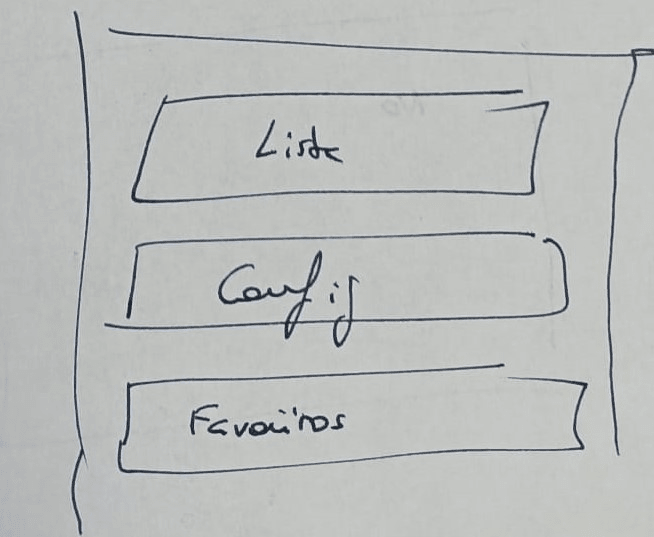 Lista
Config
Favoritos